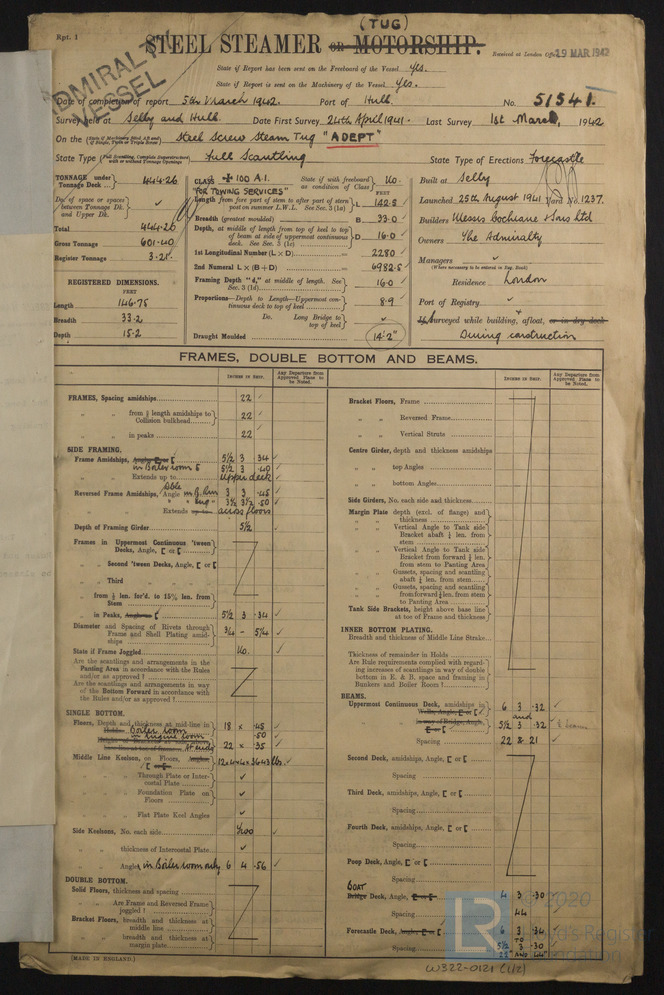 (TUG)
Rpt. 1
STEEL STEAMER OR MOTORSHIP.
Received at London Office 19 MAR 1942
ADMIRALTY VESSEL
State if Report has been sent on the Freeboard of the Vessel Yes.
State if Report is sent on the Machinery of the Vessel Yes.
Date of completion of report 5th March 1942. Port of Hull. No. 51541.
Survey held at Selby and Hull. Date First Survey 24th April 1941. Last Survey 1st March, 1942
On the Steel Screw Steam Tug "ADEPT"
State Type Full Scantling State Type of Erections Forecastle
TONNAGE under Tonnage Deck 444.26
Do. of space or spaces between Tonnage Dk. and Upper Dk. ✓
Total 444.26
Gross Tonnage 601.40
Register Tonnage 3.21
REGISTERED DIMENSIONS.
FEET
Length 146.75
Breadth 33.2
Depth 15.2
CLASS ✠ 100 A.1. State if with freeboard as condition of Class No.
"FOR TOWING SERVICES" FEET
Length from fore part of stem to after part of stern post on summer L.W.L. See Sec. 3 (1a) L 142.5
Breadth (greatest moulded) B 33.0
Depth, at middle of length from top of keel to top of beam at side of uppermost continuous deck. See Sec. 3 (1c) D 16.0
1st Longitudinal Number (L × D) 2280
2nd Numeral L × (B + D) 6982.5
Framing Depth "d," at middle of length. See Sec. 3 (1d) 16.0
Proportions—Depth to Length—Uppermost continuous deck to top of keel 8.9
Do. Long Bridge to top of keel ✓
Draught Moulded 14'2"
Built at Selby
Launched 25th August 1941 Yard No. 1237.
Builders Messrs Cochrane & Sons Ltd
Owners The Admiralty
Managers ✓
(Where necessary to be entered in Reg. Book)
Residence London
Port of Registry ✓
If Surveyed while building, afloat, or in dry dock
During construction
FRAMES, DOUBLE BOTTOM AND BEAMS.
INCHES IN SHIP. Any Departure from Approved Plans to be Noted.
INCHES IN SHIP. Any Departure from Approved Plans to be Noted.
FRAMES, Spacing amidships 22
" " from ⅕ length amidships to Collision bulkhead 22
" " in peaks 22
SIDE FRAMING.
Frame Amidships, 5½ 3 .34
in Boiler room 5½ 3 .40
" " Extends up to upper deck
Reversed Frame Amidships, Angle in B. Rm 3 3 .45
3½ 3½ .50
" " Extends up to across floors
Depth of Framing Girder 5½
Frames in Uppermost Continuous 'tween Decks, Angle, [ or [
" Second 'tween Decks, Angle, [ or [
" Third " " "
" from ⅕ len. for'd. to 15% len. from Stem
" in Peaks, 5½ 3 .34
Diameter and Spacing of Rivets through Frame and Shell Plating amidships ¾ - 5¼
State if Frame Joggled No.
Are the scantlings and arrangements in the Panting Area in accordance with the Rules and/or as approved?
Are the scantlings and arrangements in way of the Bottom Forward in accordance with the Rules and/or as approved?
SINGLE BOTTOM.
Floors, Depth and thickness at mid-line in Boiler room 18 × .45
in engine room .50
At ends 22 × .35
Middle Line Keelson, on Floors, 12×4×4×36.43 lbs.
" " Through Plate or Intercostal Plate ✓
" " Foundation Plate on Floors ✓
" " Flat Plate Keel Angles ✓
Side Keelsons, No. each side Two
" " thickness of Intercostal Plate ✓
" " Angles in Boiler room only 6 4 .56
DOUBLE BOTTOM.
Solid Floors, thickness and spacing
" " Are Frame and Reversed Frame joggled?
Bracket Floors, breadth and thickness at middle line
" " breadth and thickness at margin plate
(MADE IN ENGLAND.)
Bracket Floors, Frame
" " Reversed Frame
" " Vertical Struts
Centre Girder, depth and thickness amidships
" " top Angles
" " bottom Angles
Side Girders, No. each side and thickness
Margin Plate depth (excl. of flange) and thickness
" " Vertical Angle to Tank side Bracket abaft ¼ len. from stem
" " Vertical Angle to Tank side Bracket from forward ¼ len. from stem to Panting Area
" " Gussets, spacing and scantling abaft ¼ len. from stem
" " Gussets, spacing and scantling from forward ¼ len. from stem to Panting Area
Tank Side Brackets, height above base line at toe of Frame and thickness
INNER BOTTOM PLATING.
Breadth and thickness of Middle Line Strake
Thickness of remainder in Holds
Are Rule requirements complied with regarding increases of scantlings in way of double bottom in E. & B. space and framing in Bunkers and Boiler Room?
BEAMS.
Uppermost Continuous Deck, amidships 6 3 .32
and
5½ 3 .32
Spacing 22 & 21
Second Deck, amidships, Angle, [ or [
Spacing
Third Deck, amidships, Angle, [ or [
Spacing
Fourth Deck, amidships, Angle, [ or [
Spacing
Poop Deck, Angle, [ or [
Spacing
BOAT
Bridge Deck, 4 3 .30
Spacing 44
Forecastle Deck, 6 3 .34
TO
5½ 3 .30
Spacing 22" AND 44"
© 2020
LR
Lloyd's Register
Foundation
W322-0121 (1/2)